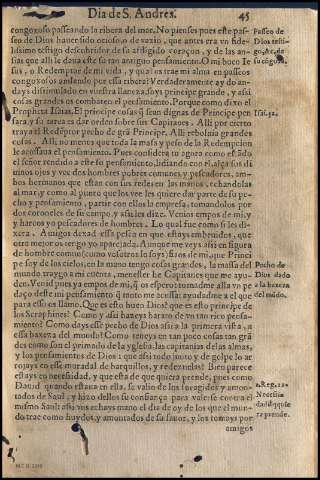 Dia de S. Andres. 45
congoxoso passeando la ribera del mar. No pienses pues este pas-
seo de Dios auer sido ocioso, o de vazio, que antes era vn fide-
lissimo testigo descubridor de su afligido coraçon, y de las an-
sias que alli le daua este su tan antiguo pensamiento. O mi buen Ie
sus, o Redemptor de mi vida, y que os trae mi alma en passeos
congoxosos anelando por essa ribera? Verdaderamente ay do an-
days dissimulado en vuestra llaneza, soys principe grande, y assi
cosas grandes os combaten el pensamiento. Porque como dixo el
Propheta Isaias, El principe cosas que sean dignas de Principe pen
sara, y su tarea es dar orden sobre sus Capitanes. Alli por cierto
traya el Redemptor pecho de gran Principe. Alli reboluia grandes
cosas. Alli, no menos que toda la masa y peso de la Redempcion
le acossaua el pensamiento. Pues considera tu agora como estado
el señor rendido a este su pensamiento, lidiando con el, alça sus di
uinos ojos y vee dos hombres pobres comunes, y pescadores, am
bos hermanos que estan con sus redes en las manos, echandolas
al mar, y como al punto que los vee les quiere dar parte de su pe-
cho y pensamiento, partir con ellos la empresa, tomandolos por
dos coroneles de su campo, y assi les dize. Venios empos de mi, y
hareos yo pescadores de hombres. Lo qual fue como si les di-
xera. Amigos dexad essa pesca en que estays embeuidos, que
otra mejor os tengo yo aparejada. Aunque me veys assi en figura
de hombre comun (como vosotros lo soys) sino de mi, que Princi
pe soy de los cielos, en la mano tengo cosas grandes, la massa del
mundo traygo a mi cuenta, menester he Capitanes que me ayu-
den. Venid pues ya empos de mi, que os espero: tomadme alla vn pe
daço deste mi pensamiento que tanto me acossa: ayudadme a el que
para esso os llamo. Que es esto buen Dios? que es esto principe de
los Seraphines? Como y assi hazeys barato de vn tan rico pensa-
miento? Como days esse pecho de Dios assi a la primera vista, a
essa baxeza del mundo? Como teneys en tan poco cosas tan gra
des como son el primado de la yglesia, las capitanias de las almas,
y los pensamientos de Dios: que assi todo junto y de golpe lo ar
rojays en esse muradal de barquillos, y redezuelas? Bien parece
que estays en necesidad, y que esta de que quiera prende, pues como
Dauid quando estaua en ella, se valio de los foragidos y amon-
tados de Saul, y hizo dellos su confiança para valerse contra el
mismo Saul: assi vos echays mano el dia de oy de los que el mun-
do trae como huydos, y amontados de su fauor, y los tomays por
amigos
Passeo de
Dios testi-
go, &c. de
su cógoxa.
Isai. 32.
Pecho de
Dios dado
a la baxeza
del mūdo.
1. Reg. 22.
Necessi-
dad
ra prende.